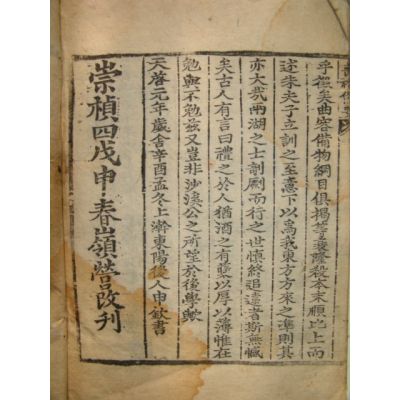 乎徵矣曲容備物綱目俱揭等衰隆殺本末順比上而
述朱夫子立訓之至意下以爲我東方方來之準則其
亦大哉兩湖之士剞劂而行之世愼終追遠者斯無憾
矣古人有言曰禮之於人猶酒之有蘖以厚以薄惟在
勉與不勉玆又豈非沙溪公之所望於後學歟
天啓元年歲舍辛酉孟冬上澣東陽後人申欽書
崇禎四戊申春嶺營改刊